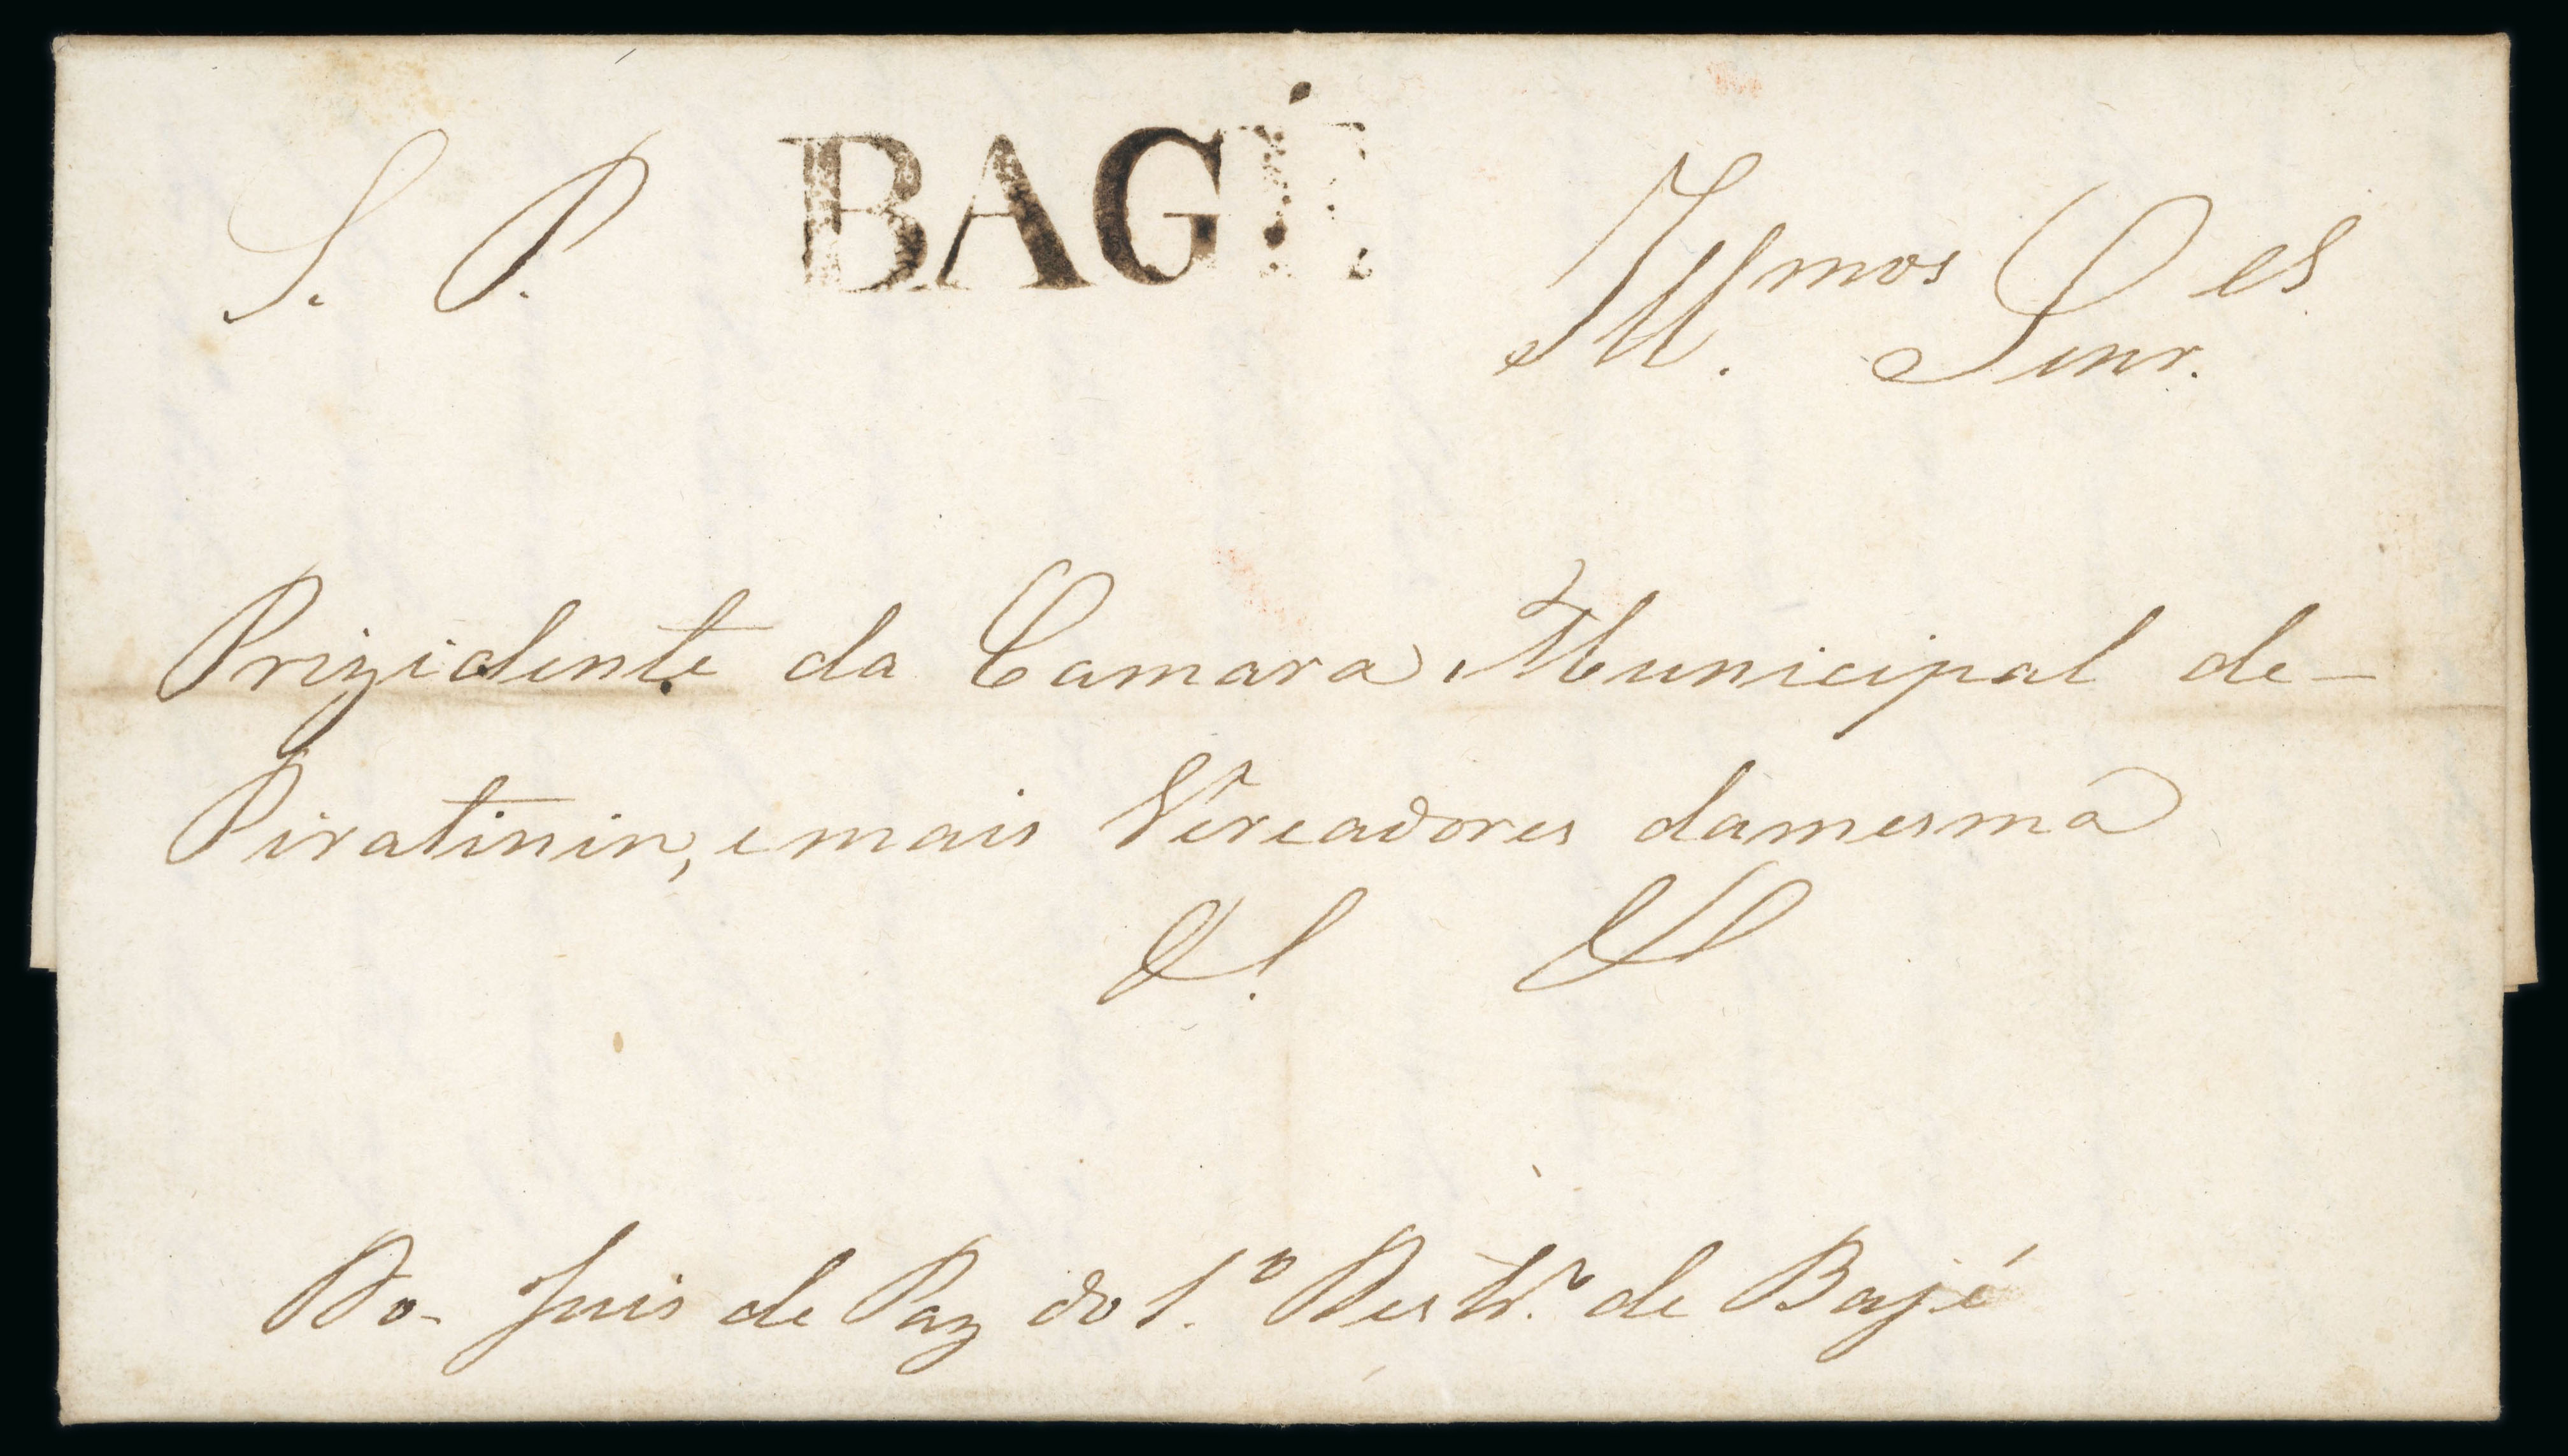 S. P. BAGÉ Ill.mos Senr.es
Prizidente da Camara Municipal de-
Piratinin, e mais Vereadores damesma
Do- Juis de Paz do 1.º Destr.º de Bajé